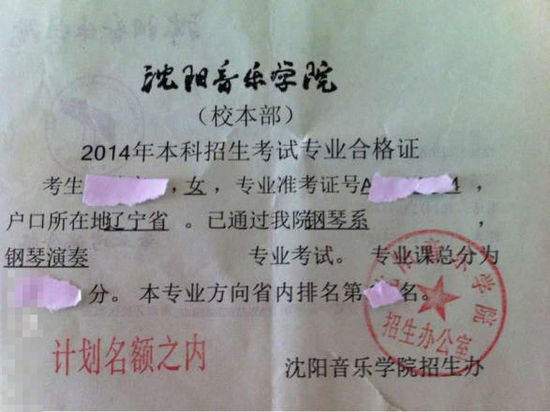 沈阳音乐学院
（校本部）
2014年本科招生考试专业合格证
考生 ，女，专业准考证号A 4，
户口所在地辽宁省。已通过我院钢琴系，
钢琴演奏 专业考试。专业课总分为
分。本专业方向省内排名第 名。
沈阳音乐学院
招生办公室
计划名额之内
沈阳音乐学院招生办